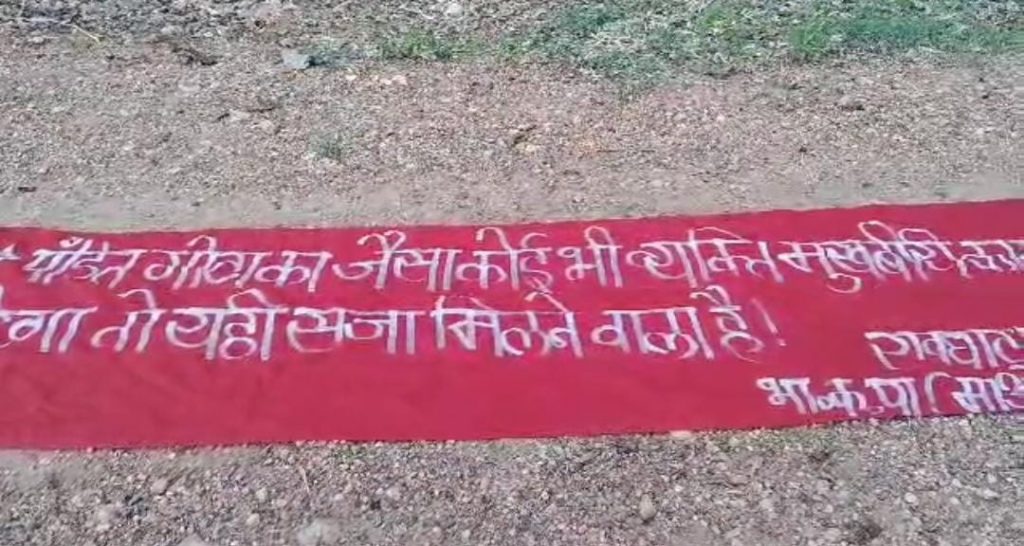 पाँडेत गोटा का जैसा कोई भी व्यक्ति मुखबीरी
तो यही सजा मिलने वाला है!
भा.क.पा (